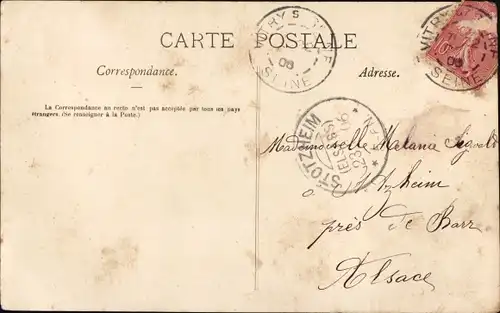 VITRY S SEINE
08
VITRY S SEINE
08
CARTE POSTALE
Correspondance.
Adresse.
La Correspondance au recto n'est pas acceptée par tous les pays
étrangers. (Se renseigner à la Poste.)
STOTZHEIM
(ELSASS)
Mademoiselle Melanie
à Stotzheim
près de Barr
Alsace